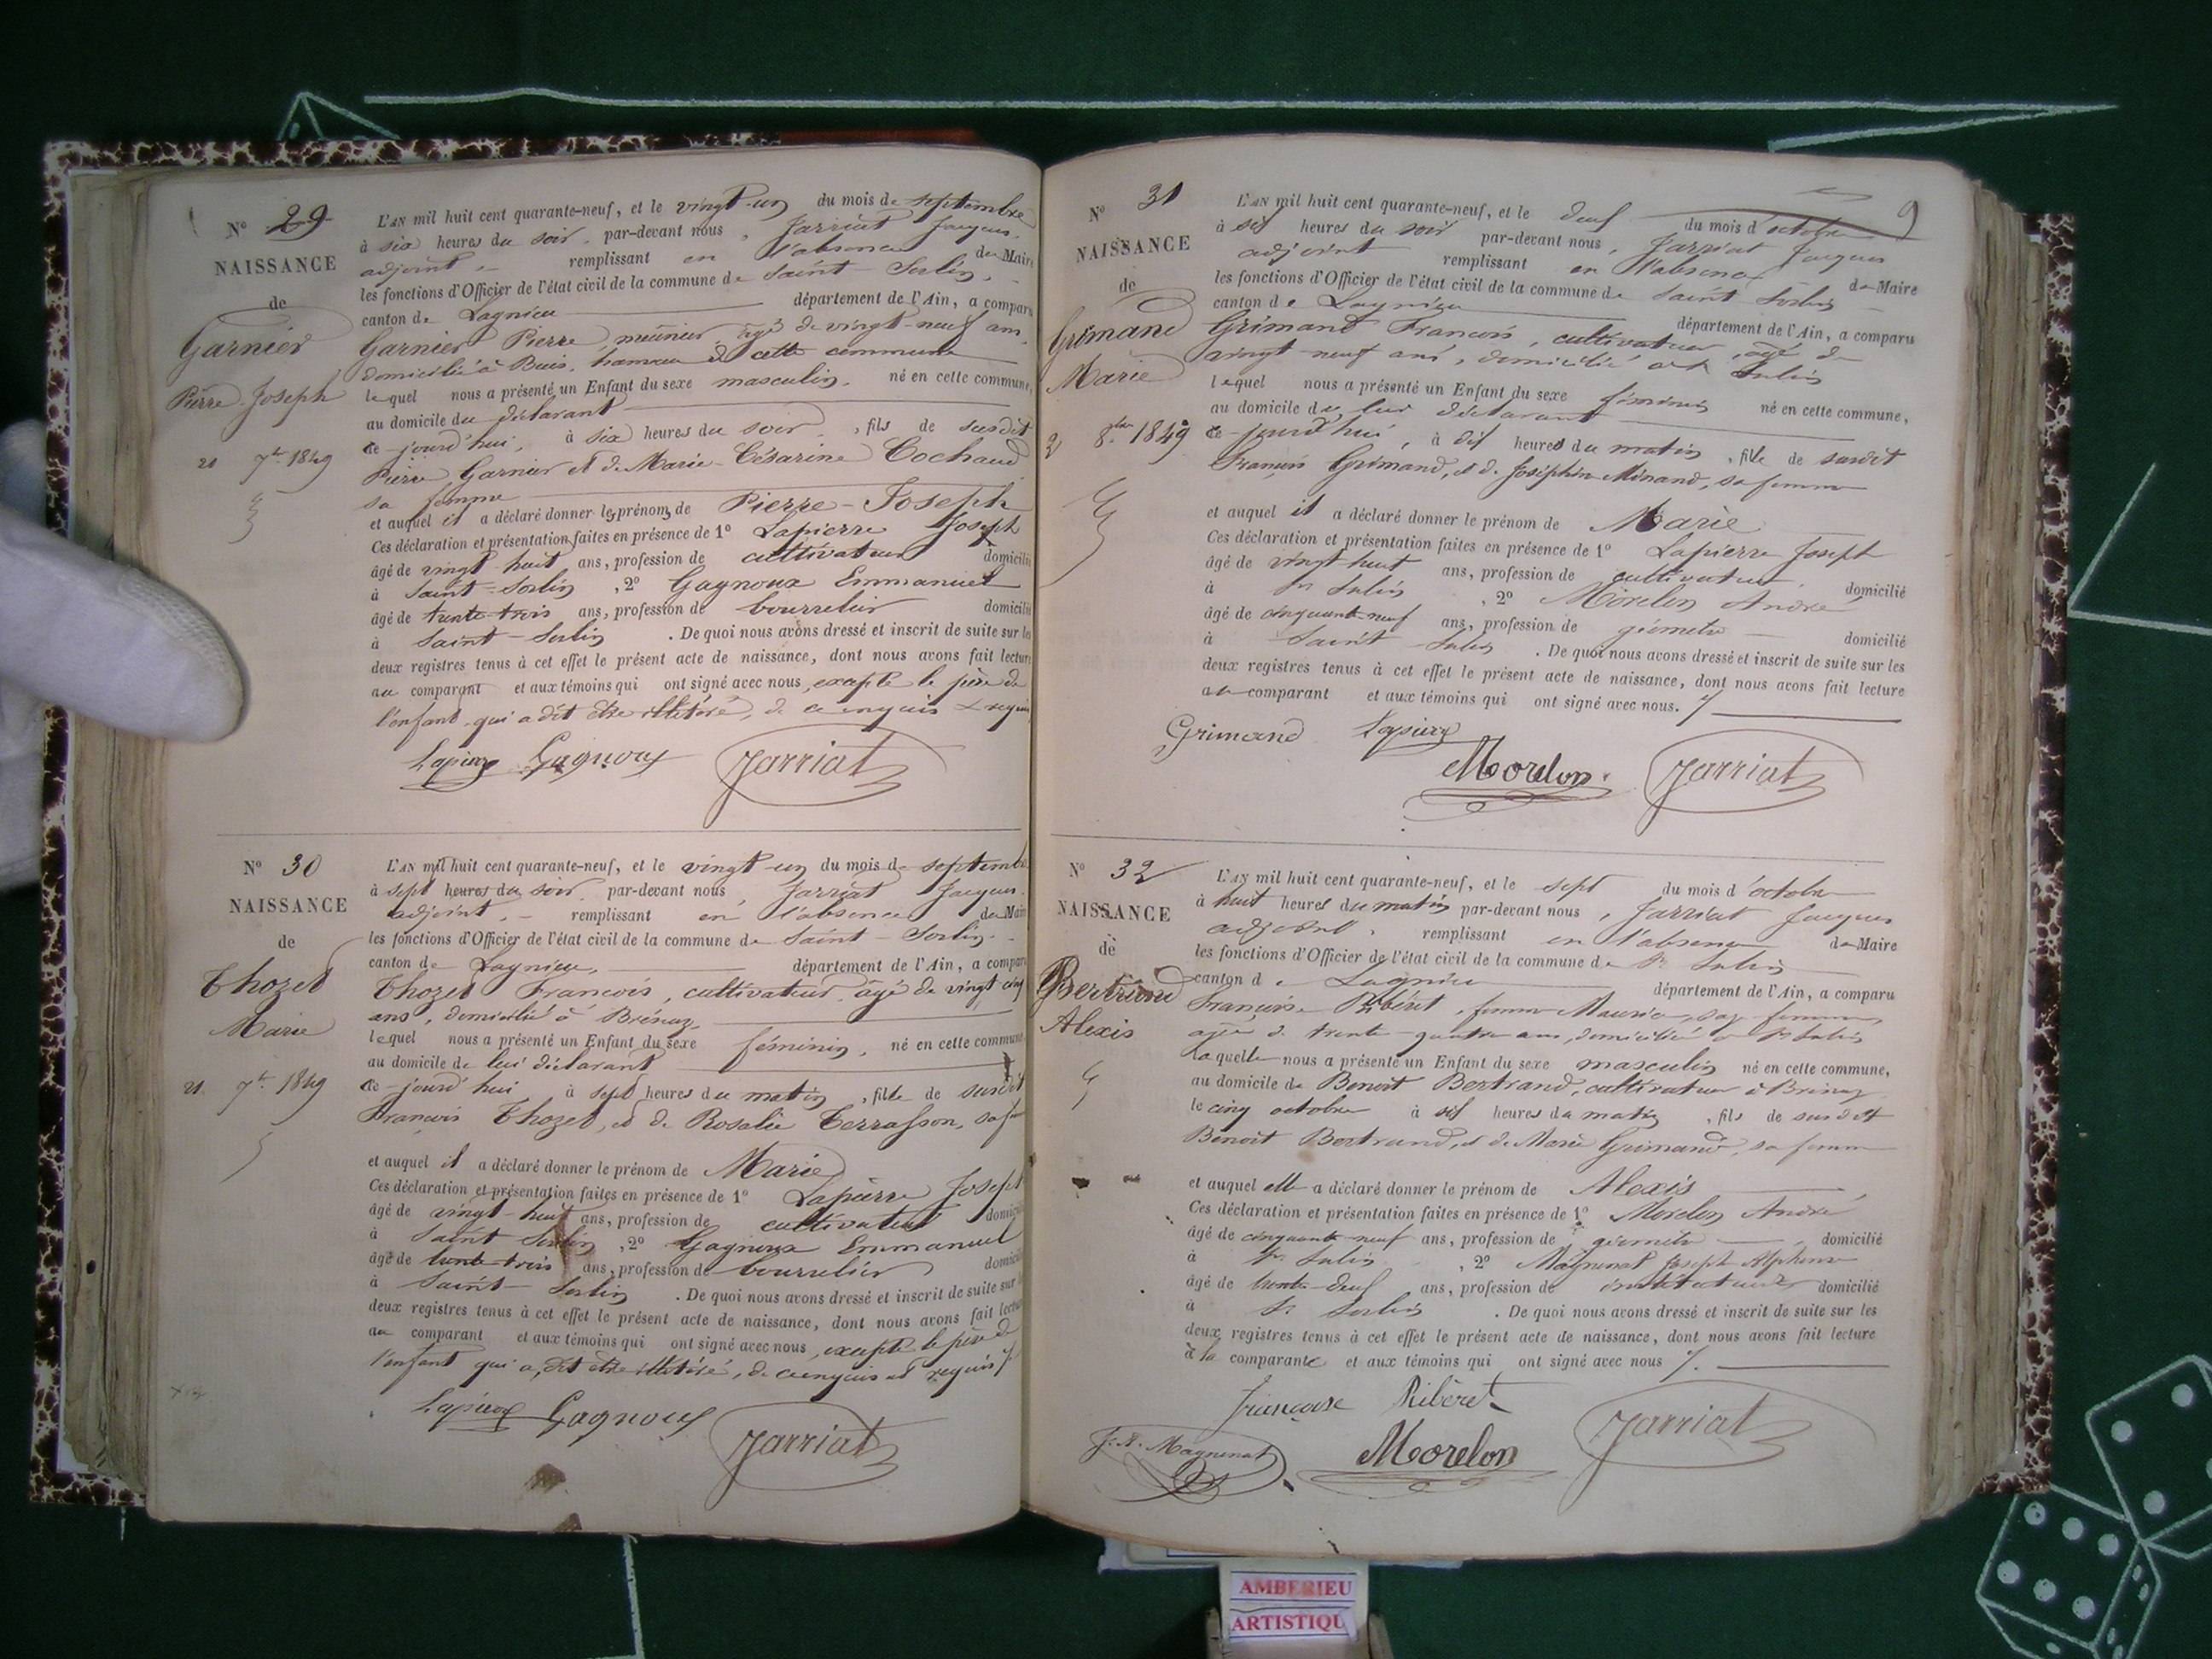 N° 29
NAISSANCE
de
Garnier
Pierre Joseph
21 7bre 1849
L'AN mil huit cent quarante-neuf, et le vingt-un du mois de septembre
à six heures du soir, par-devant nous, Jarriat Jacques,
adjoint, remplissant en l'absence du Maire
les fonctions d'Officier de l'état civil de la commune de Saint-Sorlin,
canton de Lagnieu département de l'Ain, a comparu
Garnier Pierre, meunier, âgé de vingt-neuf ans,
domicilié à Buis, hameau de cette commune
lequel nous a présenté un Enfant du sexe masculin, né en cette commune,
au domicile du déclarant
ce-jourd'hui, à six heures du soir, fils de susdit
Pierre Garnier et de Marie-Césarine Cochaud
sa femme
et auquel il a déclaré donner les prénoms de Pierre-Joseph
Ces déclaration et présentation faites en présence de 1° Lapierre Joseph
âgé de vingt-huit ans, profession de cultivateur domicilié
à Saint-Sorlin, 2° Gagnoux Emmanuel
âgé de trente-trois ans, profession de bourrelier domicilié
à Saint-Sorlin. De quoi nous avons dressé et inscrit de suite sur les
deux registres tenus à cet effet le présent acte de naissance, dont nous avons fait lecture
au comparant et aux témoins qui ont signé avec nous, excepté le père de
l'enfant, qui a dit être illétéré, de ce enquis & requis
Lapierre Gagnoux Jarriat
N° 30
NAISSANCE
de
Thozet
Marie
21 7bre 1849
L'AN mil huit cent quarante-neuf, et le vingt-un du mois de septembre
à sept heures du soir, par-devant nous, Jarriat Jacques,
adjoint, remplissant en l'absence du Maire
les fonctions d'Officier de l'état civil de la commune de Saint-Sorlin
canton de Lagnieu, département de l'Ain, a comparu
Thozet François, cultivateur, âgé de vingt cinq
ans, domicilié à Brénaz,
lequel nous a présenté un Enfant du sexe féminin, né en cette commune,
au domicile de lui déclarant
ce-jourd'hui à sept heures du matin, fille de susdit
François Thozet, et de Rosalie Terrasson, sa
et auquel il a déclaré donner le prénom de Marie
Ces déclaration et présentation faites en présence de 1° Lapierre Joseph
âgé de vingt-huit ans, profession de cultivateur
à Saint Sorlin, 2° Gagnoux Emmanuel
âgé de trente-trois ans, profession de bourrelier
à Saint-Sorlin. De quoi nous avons dressé et inscrit de suite sur
deux registres tenus à cet effet le présent acte de naissance, dont nous avons fait lecture
au comparant et aux témoins qui ont signé avec nous, excepté le père de
l'enfant qui a dit être illétéré, de ce enquis et requis
Lapierre Gagnoux
Jarriat
9
N° 31
NAISSANCE
de
Grimand
Marie
2 8bre 1849
L'AN mil huit cent quarante-neuf, et le deux du mois d'octobre
à six heures du soir par-devant nous, Jarriat Jacques
adjoint remplissant en l'absence du Maire
les fonctions d'Officier de l'état civil de la commune de Saint Sorlin
canton de Lagnieu département de l'Ain, a comparu
Grimand François, cultivateur, âgé de
vingt-neuf ans, domicilié à St Sulin
lequel nous a présenté un Enfant du sexe féminin né en cette commune,
au domicile de lui déclarant
ce-jourd'hui, à dix heures du matin, fille de susdit
François Grimand, et de Joséphine Minand, sa femme
et auquel il a déclaré donner le prénom de Marie
Ces déclaration et présentation faites en présence de 1° Lapierre Joseph
âgé de vingt huit ans, profession de cultivateur, domicilié
à St Sulin, 2° Morelon André
âgé de cinquante-neuf ans, profession de géomètre domicilié
à Saint-Sulin. De quoi nous avons dressé et inscrit de suite sur les
deux registres tenus à cet effet le présent acte de naissance, dont nous avons fait lecture
au comparant et aux témoins qui ont signé avec nous.
Grimand Lapierre
Morelon Jarriat
N° 32
NAISSANCE
de
Bertrand
Alexis
L'AN mil huit cent quarante-neuf, et le sept du mois d'octobre
à huit heures du matin par-devant nous, Jarriat Jacques
adjoint, remplissant en l'absence du Maire
les fonctions d'Officier de l'état civil de la commune de St Sulin
canton de Lagnieu département de l'Ain, a comparu
Françoise Ribéret, femme Maurice, sage femme,
âgée de trente-quatre ans, domiciliée à St Sulin
laquelle nous a présenté un Enfant du sexe masculin né en cette commune,
au domicile de Benoit Bertrand, cultivateur à Brénaz
le cinq octobre à six heures du matin, fils de susdit
Benoit Bertrand, et de Marie Grimand, sa femme
et auquel elle a déclaré donner le prénom de Alexis
Ces déclaration et présentation faites en présence de 1° Morelon André
âgé de cinquante-neuf ans, profession de géomètre, domicilié
à St Sulin, 2° Magnenat Joseph Alphonse
âgé de trente-deux ans, profession de instituteur domicilié
à St Sorlin. De quoi nous avons dressé et inscrit de suite sur les
deux registres tenus à cet effet le présent acte de naissance, dont nous avons fait lecture
à la comparante et aux témoins qui ont signé avec nous
françoise Ribéret
J. A. Magnenat Morelon Jarriat
AMBERIEU
ARTISTIQU